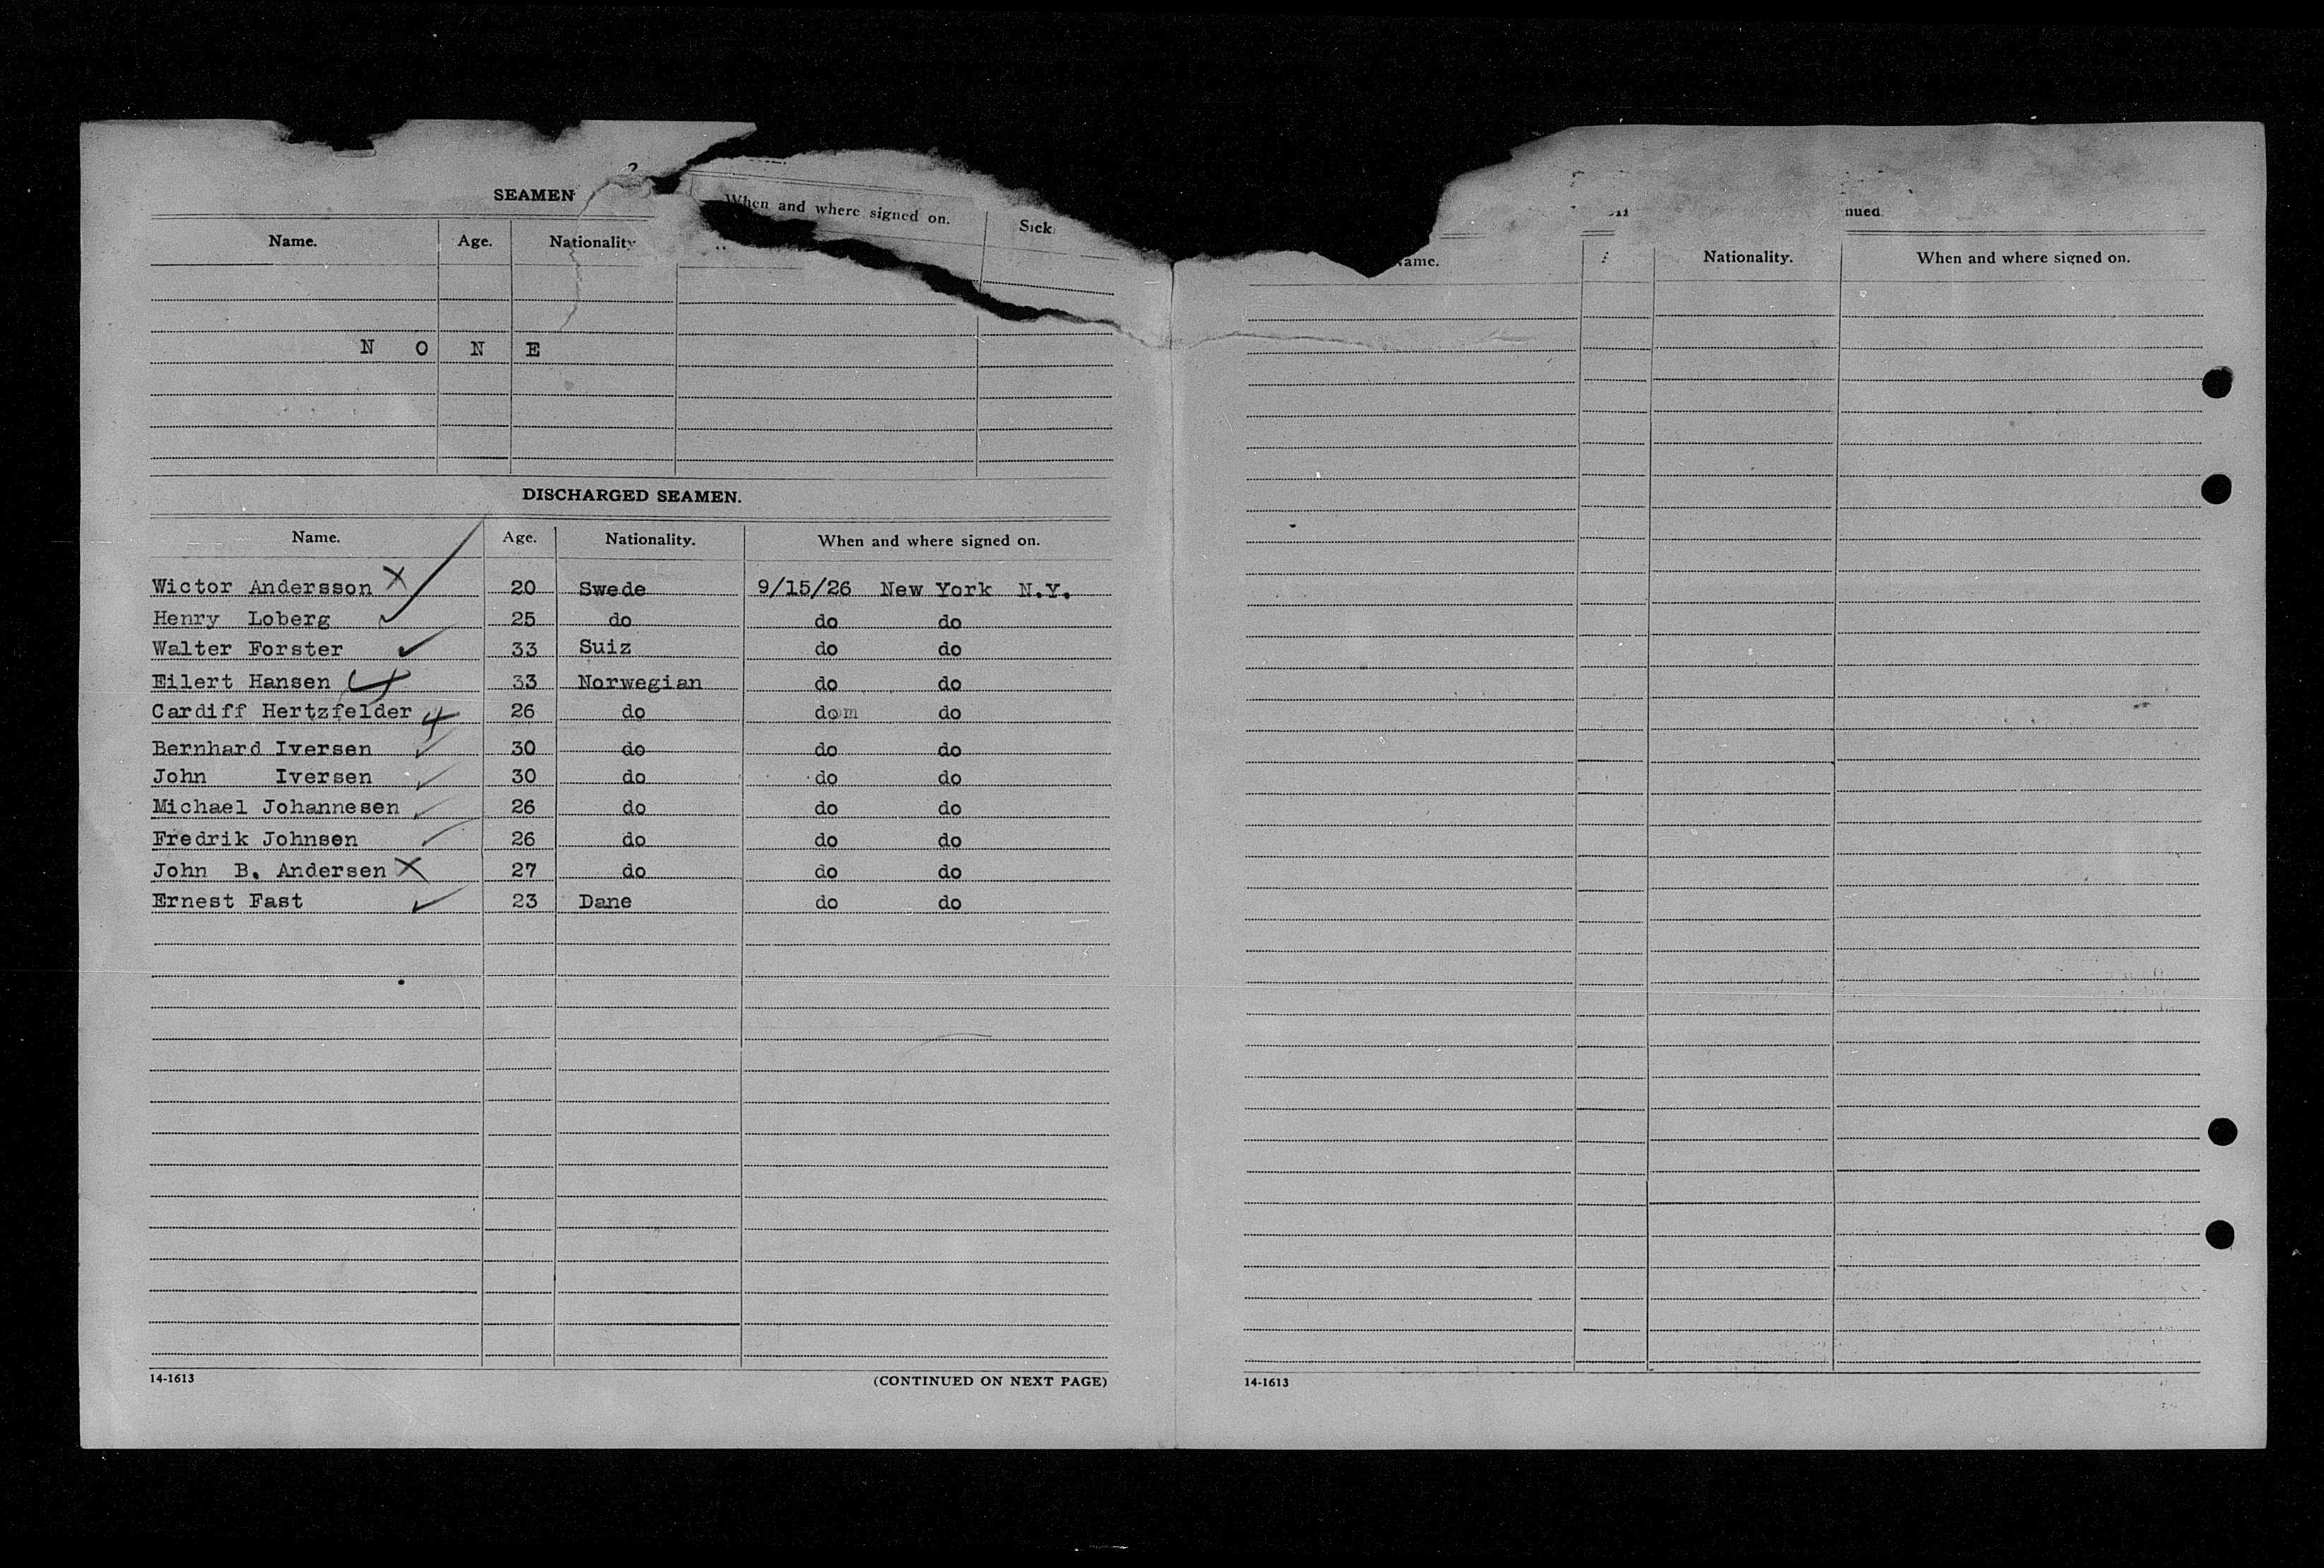 SEAMEN
Name. Age. Nationality When and where signed on. Sick
N O N E
DISCHARGED SEAMEN.
Name. Age. Nationality. When and where signed on.
Wictor Andersson X 20 Swede 9/15/26 New York N.Y.
Henry Loberg 25 do do do
Walter Forster 33 Suiz do do
Eilert Hansen 33 Norwegian do do
Cardiff Hertzfelder 26 do dom do
Bernhard Iversen 30 do do do
John Iversen 30 do do do
Michael Johannesen 26 do do do
Fredrik Johnsen 26 do do do
John B. Andersen X 27 do do do
Ernest Fast 23 Dane do do
14-1613 (CONTINUED ON NEXT PAGE)
nued
ame. Nationality. When and where signed on.
14-1613